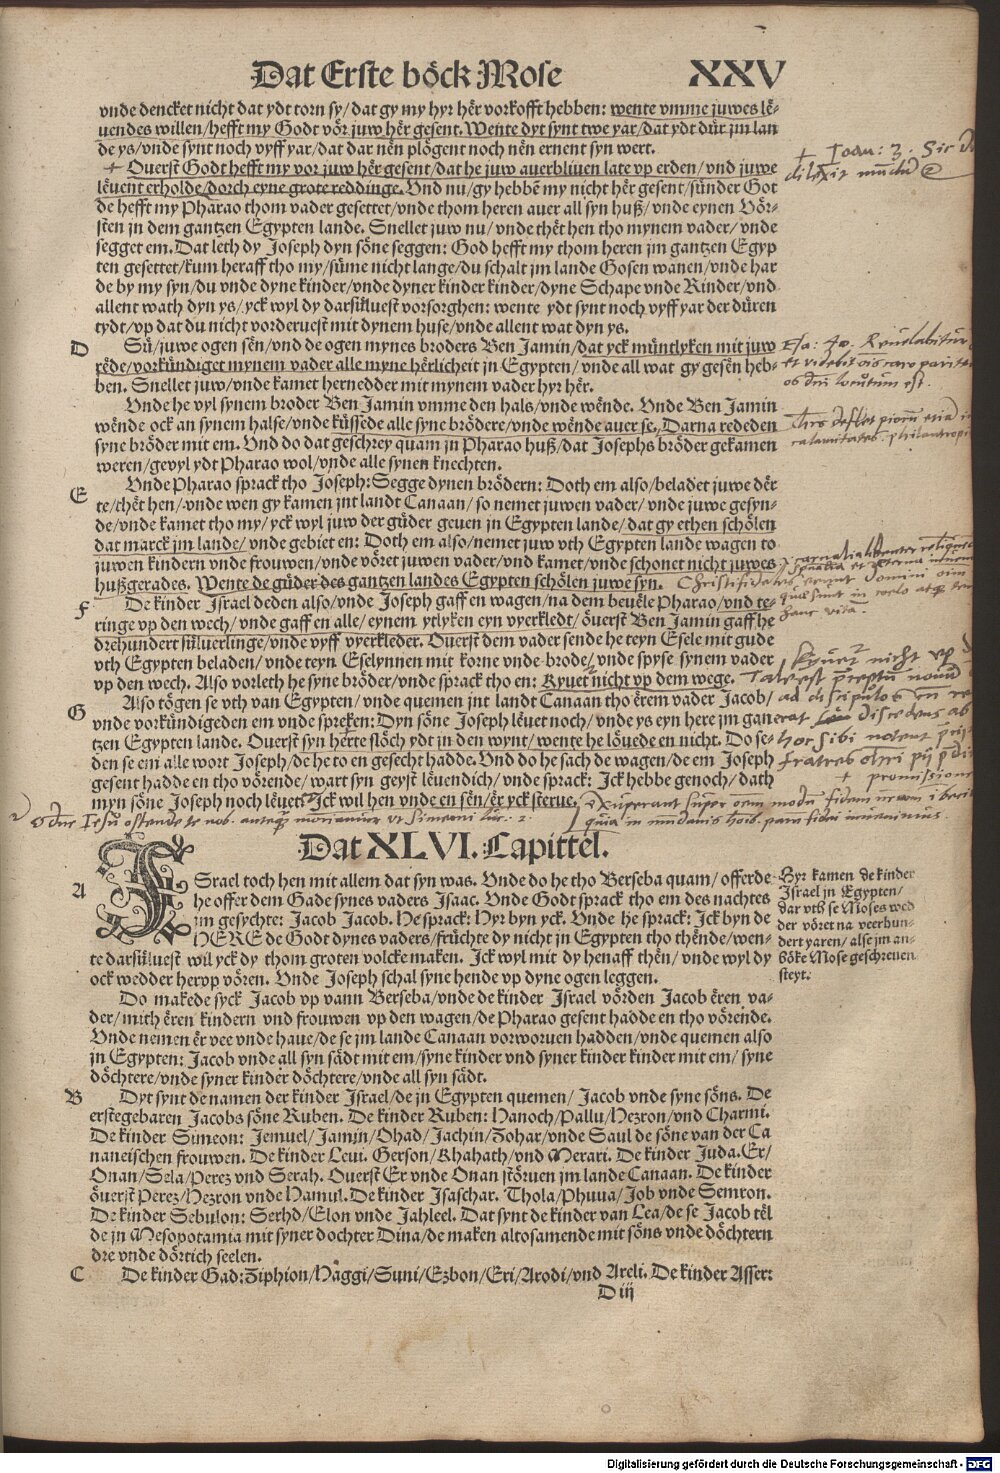 Dat Erste böck Mose XXV
vnde dencket nicht dat ydt torn sy/dat gy my hyr hër vorkofft hebben: wente vmme juwes lë-
uendes willen/hefft my Godt vör juw hër gesent. Wente dyt synt twe yar/dat ydt dür jm lan
de ys/vnde synt noch vyff yar/dat dar nën plögent noch nën ernent syn wert.
+ Ouerst Godt hefft my vor juw hër gesent/dat he juw auerbliuen late vp erden/vnd juwe
lëuent erholde/dorch eyne grote reddinge. Vnd nu/gy hebbē my nicht hër gesent/sünder Got
de hefft my Pharao thom vader gesettet/vnde thom heren auer all syn huß/vnde eynen Vör-
sten in dem gantzen Egypten lande. Snellet juw nu/vnde thët hen tho mynem vader/vnde
segget em. Dat leth dy Joseph dyn söne seggen: God hefft my thom heren jm gantzen Egyp
ten gesettet/kum heraff tho my/süme nicht lange/du schalt jm lande Gosen wanen/vnde har
de by my syn/du vnde dyne kinder/vnde dyner kinder kinder/dyne Schape vnde Rinder/vnd
allent wath dyn ys/yck wyl dy darsüluest vorsorghen: wente ydt synt noch vyff yar der düren
tydt/vp dat du nicht vorderuest mit dynem huse/vnde allent wat dyn ys.
D Sü/juwe ogen sën/vnd de ogen mynes broders Ben Jamin/dat yck müntlyken mit juw
rëde/vorkündiget mynem vader alle myne hërlicheit in Egypten/vnde all wat gy gesën heb-
ben. Snellet juw/vnde kamet hernedder mit mynem vader hyr hër.
Vnde he vyl synem broder Ben Jamin vmme den hals/vnde wënde. Vnde Ben Jamin
wënde ock an synem halse/vnde küssede alle syne brödere/vnde wënde auer se. Darna rededen
syne bröder mit em. Vnd do dat geschrey quam in Pharao huß/dat Josephs bröder gekamen
weren/gevyl ydt Pharao wol/vnde alle synen knechten.
E Vnde Pharao sprack tho Joseph: Segge dynen brödern: Doth em also/beladet juwe dër
te/thët hen/vnde wen gy kamen jnt landt Canaan/so nemet juwen vader/vnde juwe gesyn-
de/vnde kamet tho my/yck wyl juw der güder geuen in Egypten lande/dat gy ethen schölen
dat marck jm lande/vnde gebiet en: Doth em also/nemet juw vth Egypten lande wagen to
juwen kindern vnde frouwen/vnde vöret juwen vader/vnd kamet/vnde schonet nicht juwes
hußgerades. Wente de güder des gantzen landes Egypten schölen juwe syn.
F De kinder Israel deden also/vnde Joseph gaff en wagen/na dem beuële Pharao/vnd te-
ringe vp den wech/vnde gaff en alle/eynem ytlyken eyn vyerkledt/öuerst Ben Jamin gaff he
drehundert süluerlinge/vnde vyff vyerkleder. Ouerst dem vader sende he teyn Esele mit gude
vth Egypten beladen/vnde teyn Eselynnen mit korne vnde brode/vnde spyse synem vader
vp den wech. Also vorleth he syne bröder/vnde sprack tho en: Kyuet nicht vp dem wege.
G Also tögen se vth van Egypten/vnde quemen jnt landt Canaan tho ërem vader Jacob/
vnde vorkündigeden em vnde spreken: Dyn söne Joseph lëuet noch/vnde ys eyn here jm gan
tzen Egypten lande. Ouerst syn hërte slöch ydt in den wynt/wente he löuede en nicht. Do se-
den se em alle wort Joseph/de he to en gesecht hadde. Vnd do he sach de wagen/de em Joseph
gesent hadde en tho vörende/wart syn geyst lëuendich/vnde sprack: Ick hebbe genoch/dath
myn söne Joseph noch lëuet: Ick wil hen vnde en sën/ër yck sterue.
Dat XLVI. Capittel.
A ISrael toch hen mit allem dat syn was. Vnde do he tho Berseba quam/offerde
he offer dem Gade synes vaders Isaac. Vnde Godt sprack tho em des nachtes
jm gesychte: Jacob Jacob. He sprack: Hyr byn yck. Vnde he sprack: Ick byn de
HERE de Godt dynes vaders/früchte dy nicht in Egypten tho thënde/wen-
te darsüluest wil yck dy thom groten volcke maken. Ick wyl mit dy henaff thën/vnde wyl dy
ock wedder hervp vören. Vnde Joseph schal syne hende vp dyne ogen leggen.
Hyr kamen de kinder
Israel in Egypten/
dar vth se Moses wed
der vöret na veerhun-
dert yaren/alse jm an-
böke Mose geschreuen
steyt.
Do makede syck Jacob vp vann Berseba/vnde de kinder Israel vörden Jacob ëren va-
der/mith ëren kindern vnd frouwen vp den wagen/de Pharao gesent hadde en tho vörende.
Vnde nemen ër vee vnde haue/de se jm lande Canaan vorworuen hadden/vnde quemen also
jn Egypten: Jacob vnde all syn sädt mit em/syne kinder vnd syner kinder kinder mit em/syne
döchtere/vnde syner kinder döchtere/vnde all syn sädt.
B Dyt synt de namen der kinder Israel/de jn Egypten quemen/Jacob vnde syne söns. De
erstegebaren Jacobs söne Ruben. De kinder Ruben: Hanoch/Pallu/Hezron/vnd Charmi.
De kinder Simeon: Jemuel/Jamin/Ohad/Jachin/Zohar/vnde Saul de söne van der Ca
naneischen frouwen. De kinder Leui. Gerson/Khahath/vnd Merari. De kinder Juda. Er/
Onan/Sela/Perez vnd Serah. Ouerst Er vnde Onan störuen jm lande Canaan. De kinder
öuerst Perez/Hezron vnde Hamul. De kinder Isaschar. Thola/Phuua/Job vnde Semron.
De kinder Sebulon: Serhd/Elon vnde Jahleel. Dat synt de kinder van Lea/de se Jacob tël
de jn Mesopotamia mit syner dochter Dina/de maken altosamende mit söns vnde döchtern
dre vnde dörtich seelen.
C De kinder Gad: Ziphion/Häggi/Suni/Ezbon/Eri/Arodi/vnd Areli. De kinder Asser:
D iij
Digitalisierung gefördert durch die Deutsche Forschungsgemeinschaft - DFG